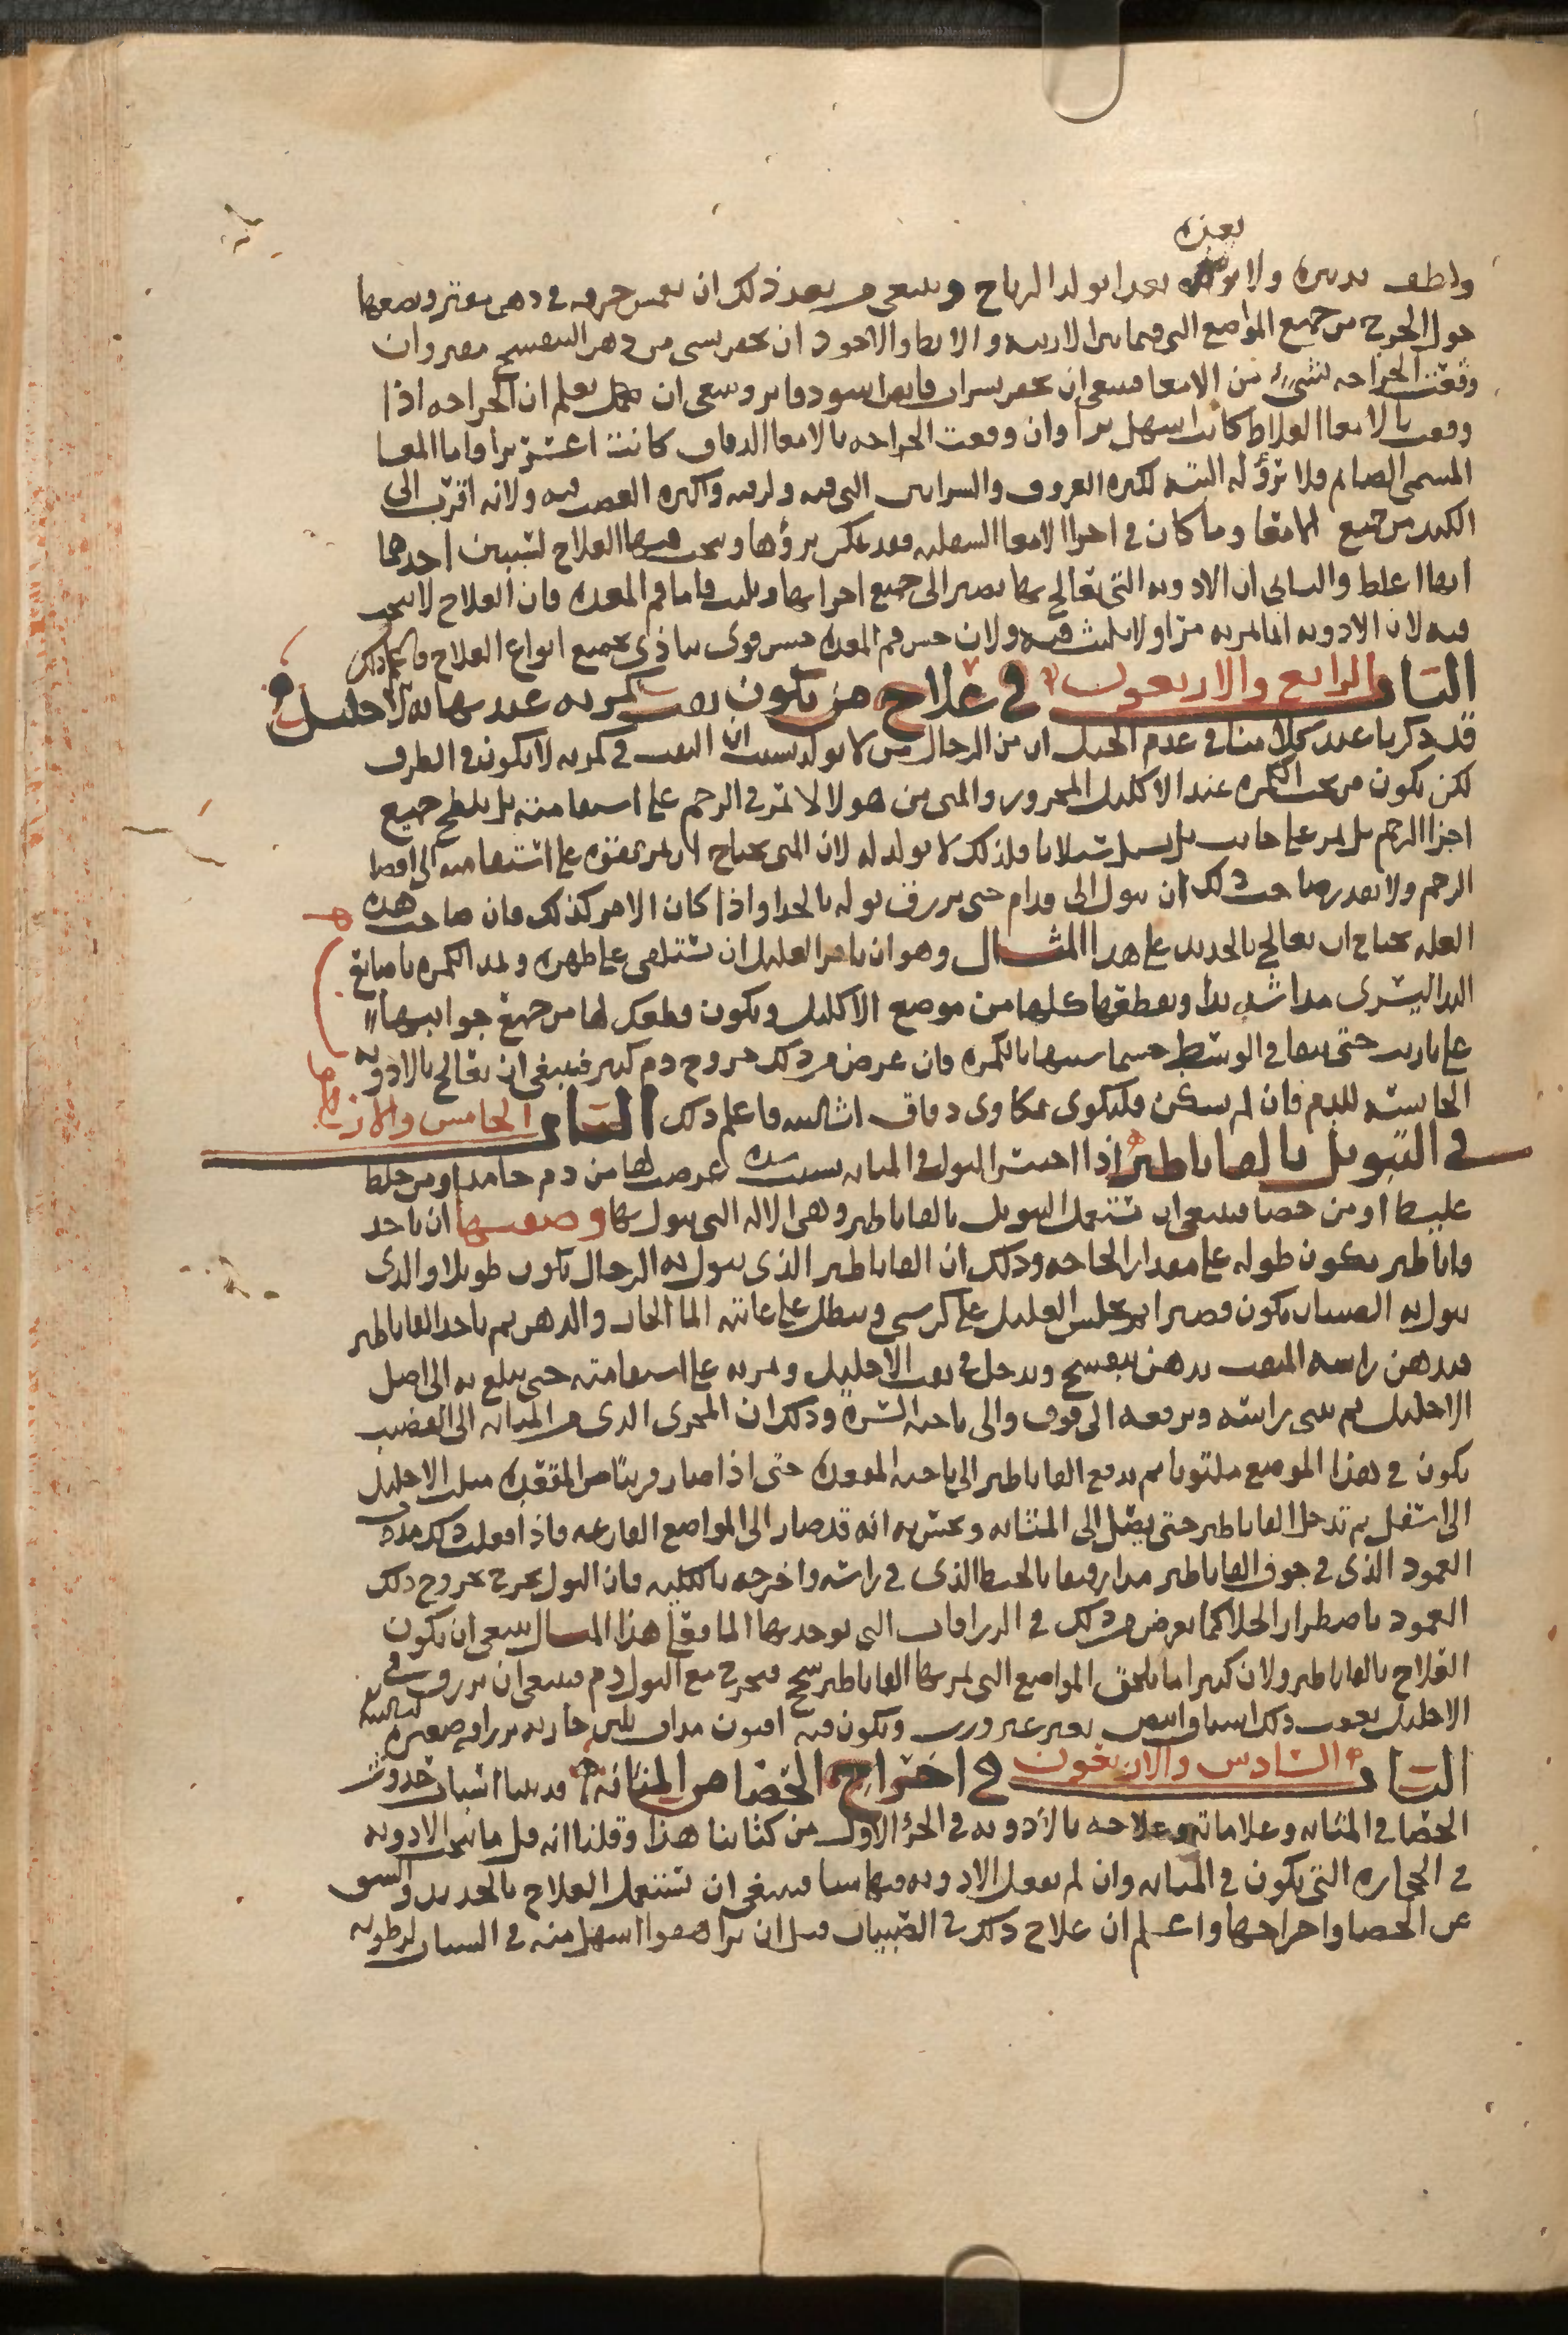 يغذه
ولطف تدبيره ولا يغذه بغذا يولد الرياح وينبغي من بعد ذلك ان يغمس خرقه في دهن مفتر ويضعها
حول الجرح من جميع المواضع التي فيما بين الاربيه والابط والاجود ان يحقن بشي من دهن البنفسج مفتر وان
وقعت الجراحه بشيء من الامعا فينبغي ان يحقن بشراب قابض اسود فاتر وينبغي ان تعلم ان الجراحه اذا
وقعت بالامعا الغلاظ كانت اسهل برأ وان وقعت الجراحه بالامعا الدقاق كانت اعسر برا واما المعا
المسمى الصايم فلا برؤ له البته لكثره العروق والشرايين التي فيه ولرقته واكثره العصب فيه ولانه اقرب الى
الكبد من جميع الامعا وما كان في اجرا الامعا السفليه فقد يمكن برؤها وينجب فيها العلاج لسببين احدهما
انها اغلظ والثاني ان الادويه التي تعالج بها تصير الى جميع اجزايها وتلبث فاما فم المعده فان العلاج لا ينجب
فيه لان الادويه انما تمر به مرا ولا تلبث فيه ولان حس فم المعده حس قوى يتاذى بجميع انواع العلاج فاعلم ذلك
الباب الرابع والاربعون في علاج من يكون ثقب كمرته عند نهايه الاحليل
قد ذكرنا عند كلامنا في عدم الحبل ان من الرجال من لا يولد بسبب ان الثقب في كمرته لا يكون في الطرف
لكن يكون من تحت الكمره عند الاكليل المحزوز والمني من هولا لا تمر في الرحم على استقامته بل يلطخ جميع
اجزا الرحم بل يمر على جانب بل يسيل سيلانا فلذلك لا يولد له لان المني يحتاج ان يمر بقوه على استقامه الى اقصا
الرحم ولا يقدر صاحب ذلك ان يبول الى قدام حتى يزرق بوله بالحدا واذا كان الامر كذلك فان صاحب هذه
العله يحتاج ان يعالج بالحديد على هذا المثال وهو ان يامر العليل ان يستلقى على ظهره ويمد الكمره باصابع
اليد اليسرى مدا شديدا ويقطعها كلها من موضع الاكليل ويكون قطعك لها من جميع جوانبها
على تاريب حتى يبقا في الوسط جسما شبيها بالكمره فان عرض من ذلك خروج دم كثير فينبغي ان يعالج بالادويه
الحابسه للدم فان لم يسكن فليكوى بمكاوى دقاق اشاليه فاعلم ذلك الباب الخامس والاربعون
في التبويل بالقاباطير اذا احتبس البول في المثانه بسبب سده عرضت لها من دم جامد او من خلط
غليظ او من حصا فينبغي ان تستعمل التبويل بالقاباطير وهي الاله التي يبول بها وصفتها ان ياخذ
قاباطير يكون طوله على مقدار الحاجه وذلك ان القاباطير الذي يبول به الرجال يكون طويلا والذي
يبول به الصبيان يكون قصيرا ثم يجلس العليل على كرسي وينطل على عانته الما الحار والدهن ثم ياخذ القاباطير
فيدهن راسه المثقب بدهن بنفسج ويدخل في ثقب الاحليل ويمر به على استقامته حتى يبلغ به الى اصل
الاحليل ثم يثنى راسه ويرفعه الى فوق والى ناحيه السره وذلك ان المجرى الذي من المثانه الى القضيب
يكون في هذا الموضع ملتويا ثم يدفع القاباطير الى ناحيه المقعده حتى اذا صار قريبا من المقعده ميل الاحليل
الى اسفل ثم تدخل القاباطير حتى يصل الى المثانه ويحس به انه قد صار الى المواضع الفارغه فاذا فعلت ذلك مدد
العمود الذي في جوف القاباطير مدا رفيقا بالخيط الذي في راسه واخرجه بالكليه فان البول يخرج بخروج ذلك
العمود باضطرار الخلا كما يعرض من ذلك في الزراقات التي يوخذ بها الما فعلى هذا المثال ينبغي ان يكون
العلاج بالقاباطير ولان كثيرا ما يلحق المواضع التي يمر بها القاباطير سحج فيخرج مع البول دم فينبغي ان يزرق في
الاحليل بعقب ذلك اشياف ابيض بغير ورى ويكون فيه افيون مداف بلبن جاريه بزراقه صغيره لتالسه
الباب السادس والاربعون في اخراج الحصا من المثانه قد بينا اسباب حدوث
الحصا في المثانه وعلاماته وعلاجه بالادويه في الجزء الاول من كتابنا هذا وقلنا انه قل ما تنجب الادويه
في الحجاره التي تكون في المثانه وان لم تفعل الادويه فيها شيا فينبغي ان تستعمل العلاج بالحديد والشق
عن الحصا واخراجها واعلم ان علاج ذلك في الصبيان قبل ان يراهقوا اسهل منه في الشبان لرطوبه